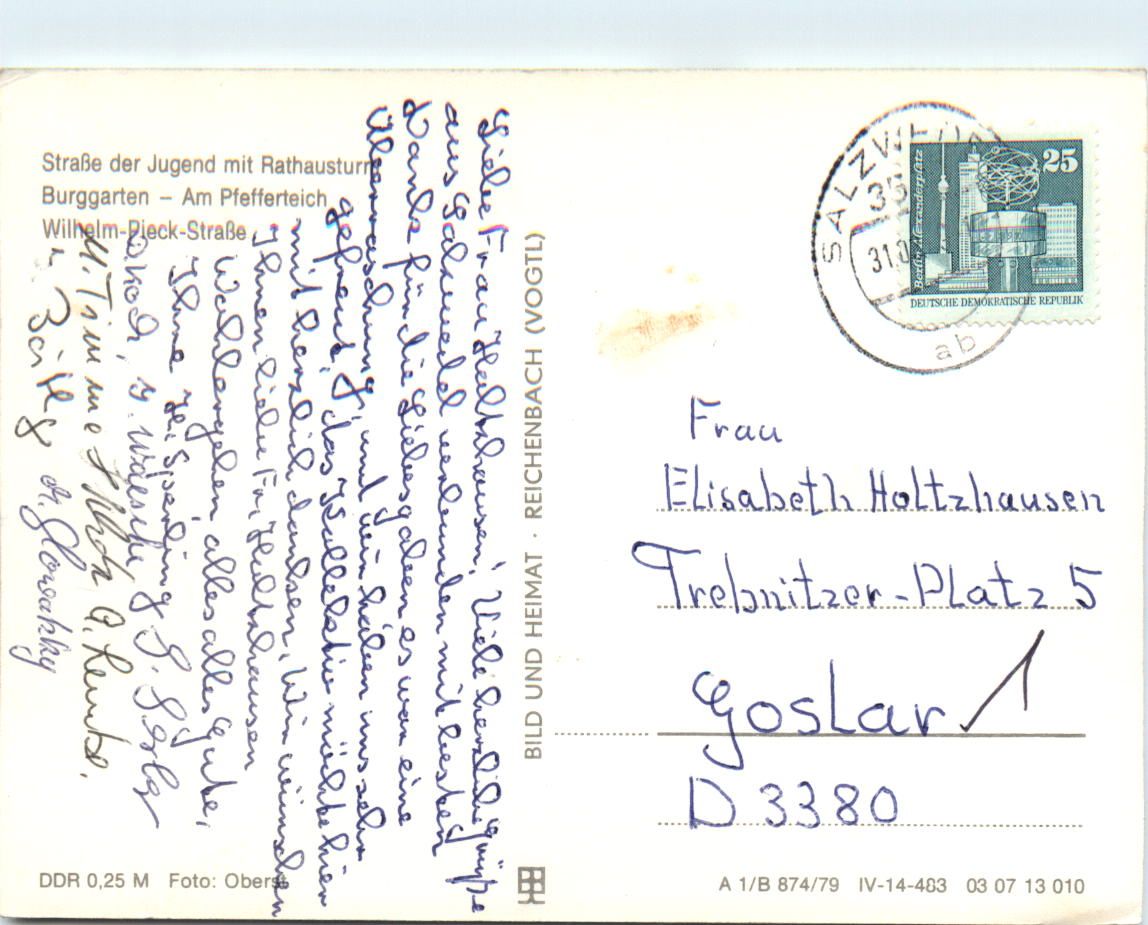 Straße der Jugend mit Rathausturm
Burggarten – Am Pfefferteich
Wilhelm-Pieck-Straße
Liebe Frau Holtzhausen, Viele herzliche Grüße
aus Salzwedel verbunden mit besten
Dank für die Liebesgaben es war eine
Überraschung, und wir haben uns sehr
gefreut, das Kollektiv möchte hier
mit herzlich danken, Wir wünschen
Ihnen liebe Fr. Holtzhausen
Wohlergehen, alles alles Gute,
Ihre H. Sperling
DDR 0,25 M Foto: Oberst
BILD UND HEIMAT · REICHENBACH (VOGTL)
SALZWEDEL
35
31.0
ab
Berlin-Alexanderplatz
25
DEUTSCHE DEMOKRATISCHE REPUBLIK
Frau
Elisabeth Holtzhausen
Trebnitzer-Platz 5
Goslar 1
D 3380
A 1/B 874/79 IV-14-483 03 07 13 010